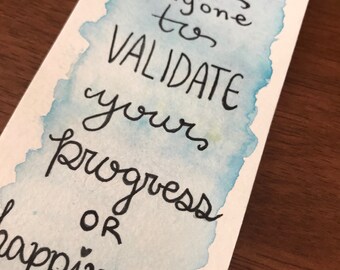 yone
to
VALIDATE
your
progress
OR
happin